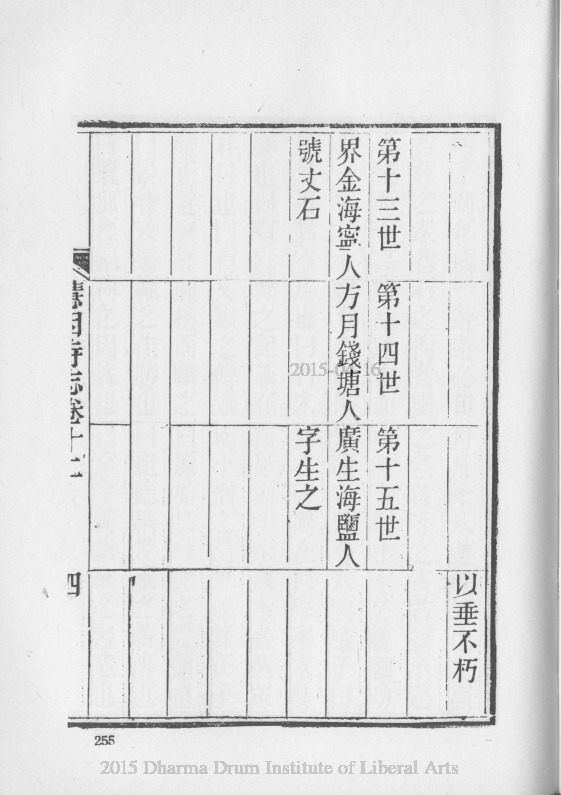 以垂不朽
第十三世 第十四世 第十五世
界金海寧人 方月錢塘人 廣生海鹽人
號丈石 字生之
慧因寺志卷十二 四
255
2015 Dharma Drum Institute of Liberal Arts